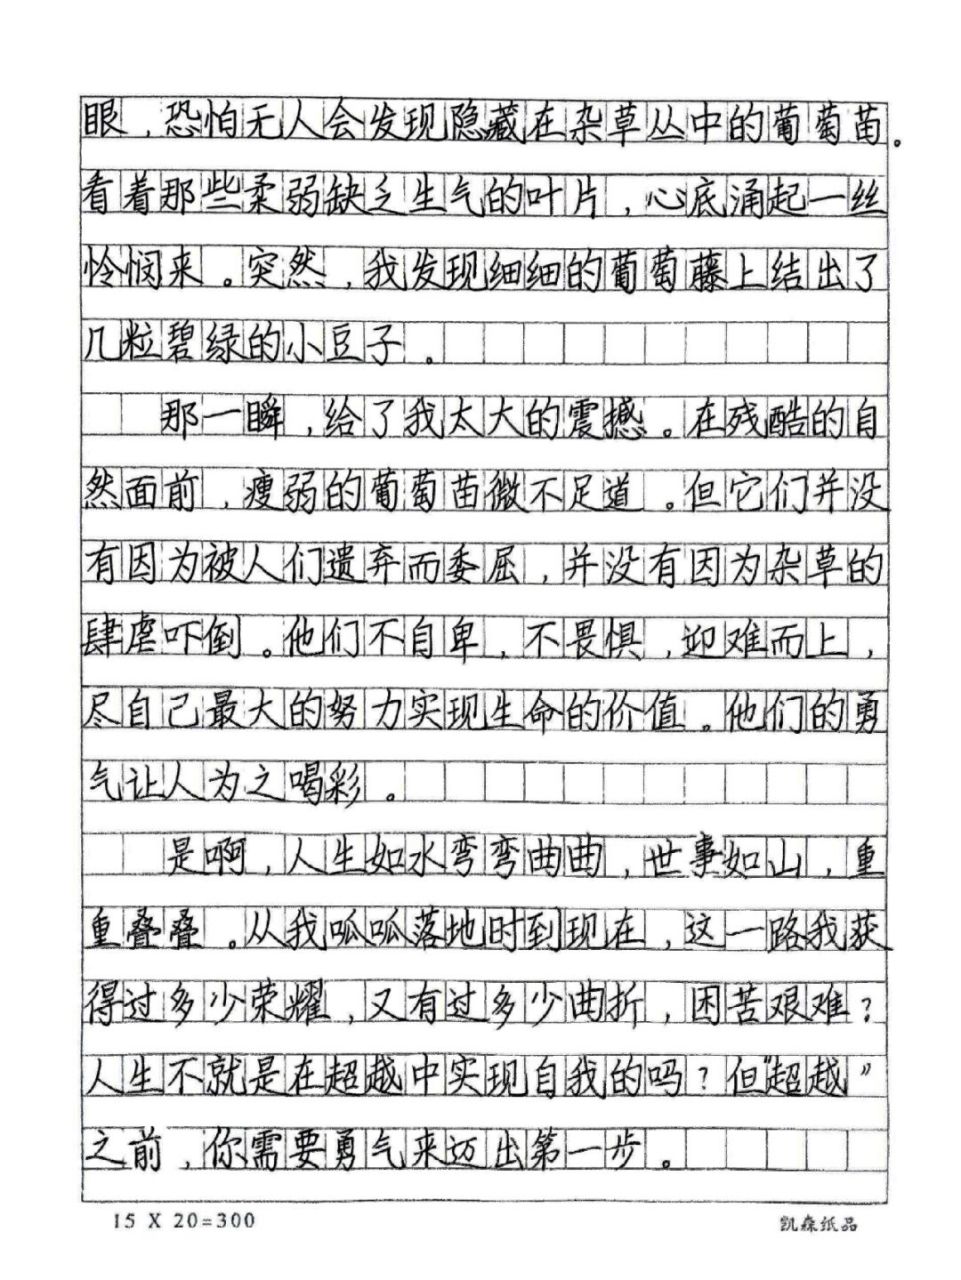 眼，恐怕无人会发现隐藏在杂草丛中的葡萄苗。
看着那些柔弱缺乏生气的叶片，心底涌起一丝
怜悯来。突然，我发现细细的葡萄藤上结出了
几粒碧绿的小豆子。
那一瞬，给了我太大的震撼。在残酷的自
然面前，瘦弱的葡萄苗微不足道。但它们并没
有因为被人们遗弃而委屈，并没有因为杂草的
肆虐吓倒。他们不自卑，不畏惧，迎难而上，
尽自己最大的努力实现生命的价值。他们的勇
气让人为之喝彩。
是啊，人生如水弯弯曲曲，世事如山，重
重叠叠。从我呱呱落地时到现在，这一路我获
得过多少荣耀，又有过多少曲折，困苦艰难？
人生不就是在超越中实现自我的吗？但“超越”
之前，你需要勇气来迈出第一步。
15 X 20=300
凯森纸品